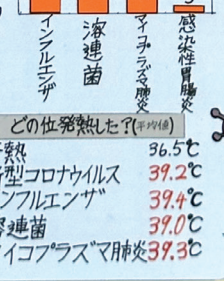 インフルエンザ
溶連菌
マイコプラズマ肺炎
感染性胃腸炎
どの位発熱した?(平均値)
熱 36.5℃
型コロナウイルス 39.2℃
ンフルエンザ 39.4℃
連菌 39.0℃
イコプラズマ肺炎 39.3℃